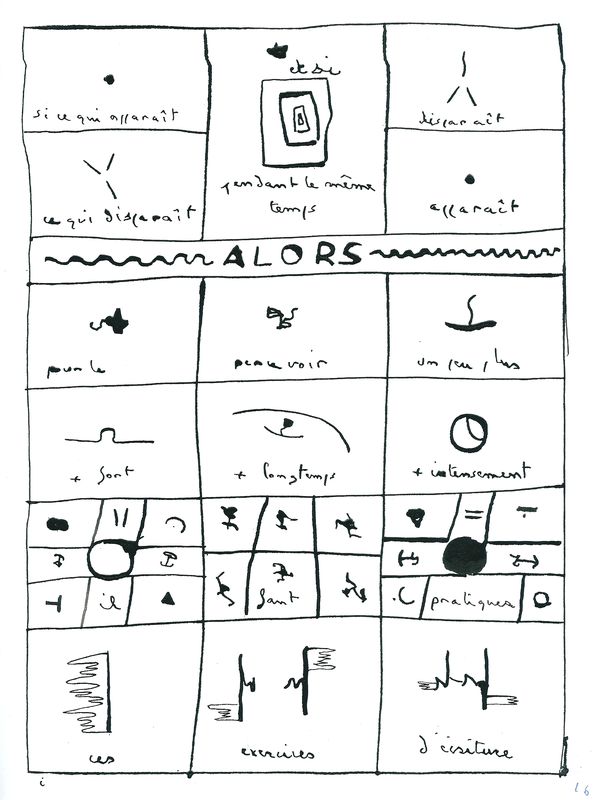 et si
si ce qui apparaît
disparaît
pendant le même
temps
ce qui disparaît
apparaît
ALORS
pour le
percevoir
un peu plus
+ fort
+ longtemps
+ intensément
il
faut
pratiquer
ces
exercices
d'écriture
16